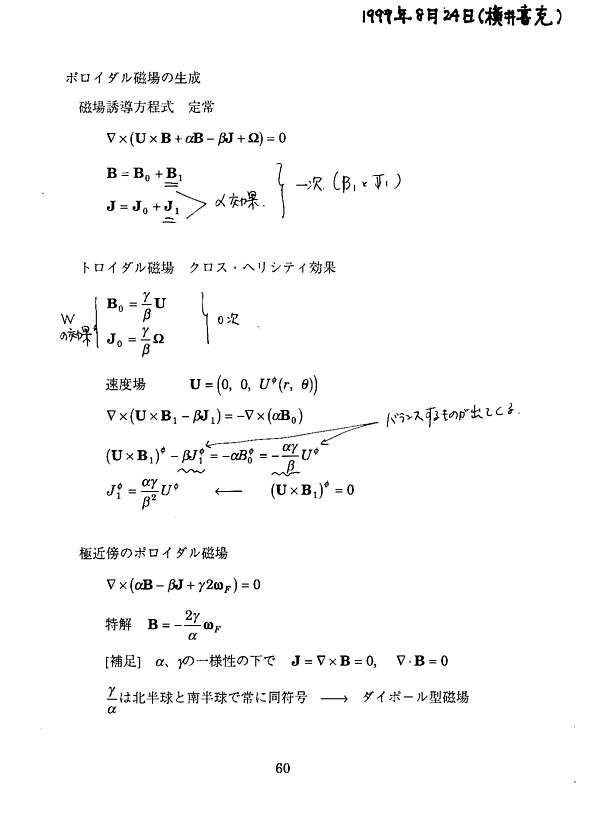 1999年8月24日(横井喜充)
ポロイダル磁場の生成
磁場誘導方程式 定常
∇×(U×B+αB−βJ+Ω)=0
B=B₀+B₁
J=J₀+J₁
α効果.
一次 (B₁, J₁)
トロイダル磁場 クロス・ヘリシティ効果
W
の効果
B₀=γ/β U
J₀=γ/β Ω
0次
速度場 U=(0, 0, U^φ(r, θ))
∇×(U×B₁−βJ₁)=−∇×(αB₀)
バランスするものが出てくる.
(U×B₁)^φ−βJ₁^φ=−αB₀^φ=−αγ/β U^φ
J₁^φ=αγ/β² U^φ ← (U×B₁)^φ=0
極近傍のポロイダル磁場
∇×(αB−βJ+γ2ω_F)=0
特解 B=−2γ/α ω_F
[補足] α、γの一様性の下で J=∇×B=0, ∇·B=0
γ/αは北半球と南半球で常に同符号 → ダイポール型磁場
60